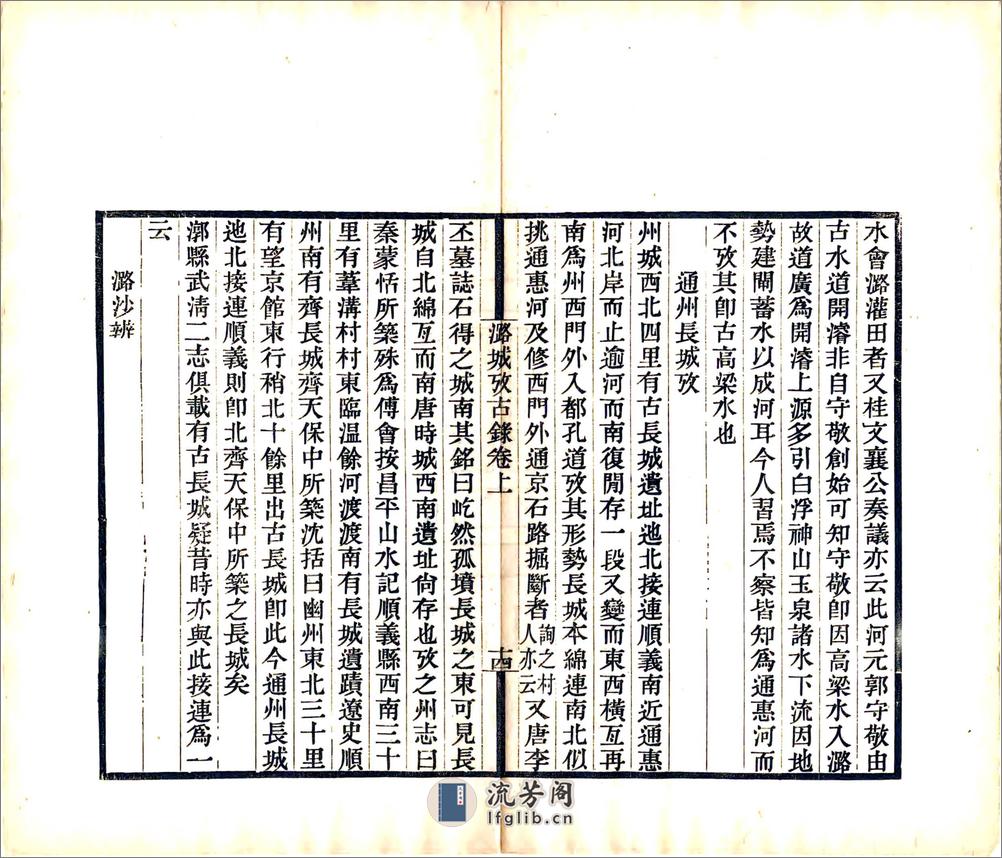 水會潞灌田者又桂文襄公奏議亦云此河元郭守敬由
古水道開濬非自守敬創始可知守敬卽因高梁水入潞
故道廣爲開濬上源多引白浮神山玉泉諸水下流因地
勢建閘蓄水以成河耳今人習焉不察皆知爲通惠河而
不攷其卽古高梁水也
通州長城攷
州城西北四里有古長城遺址迤北接連順義南近通惠
河北岸而止逾河而南復閒存一段又變而東西橫亙再
南爲州西門外入都孔道攷其形勢長城本綿連南北似
挑通惠河及修西門外通京石路掘斷者詢之村人亦云又唐李
潞城攷古錄卷上
十四
丕墓誌石得之城南其銘曰屹然孤墳長城之東可見長
城自北綿亙而南唐時城西南遺址尙存也攷之州志曰
秦蒙恬所築殊爲傅會按昌平山水記順義縣西南三十
里有葦溝村村東臨溫餘河渡渡南有長城遺蹟遼史順
州南有齊長城齊天保中所築沈括曰幽州東北三十里
有望京館東行稍北十餘里出古長城卽此今通州長城
迤北接連順義則卽北齊天保中所築之長城矣
漷縣武淸二志俱載有古長城疑昔時亦與此接連爲一
云
潞沙辨
流芳阁
lfglib.cn